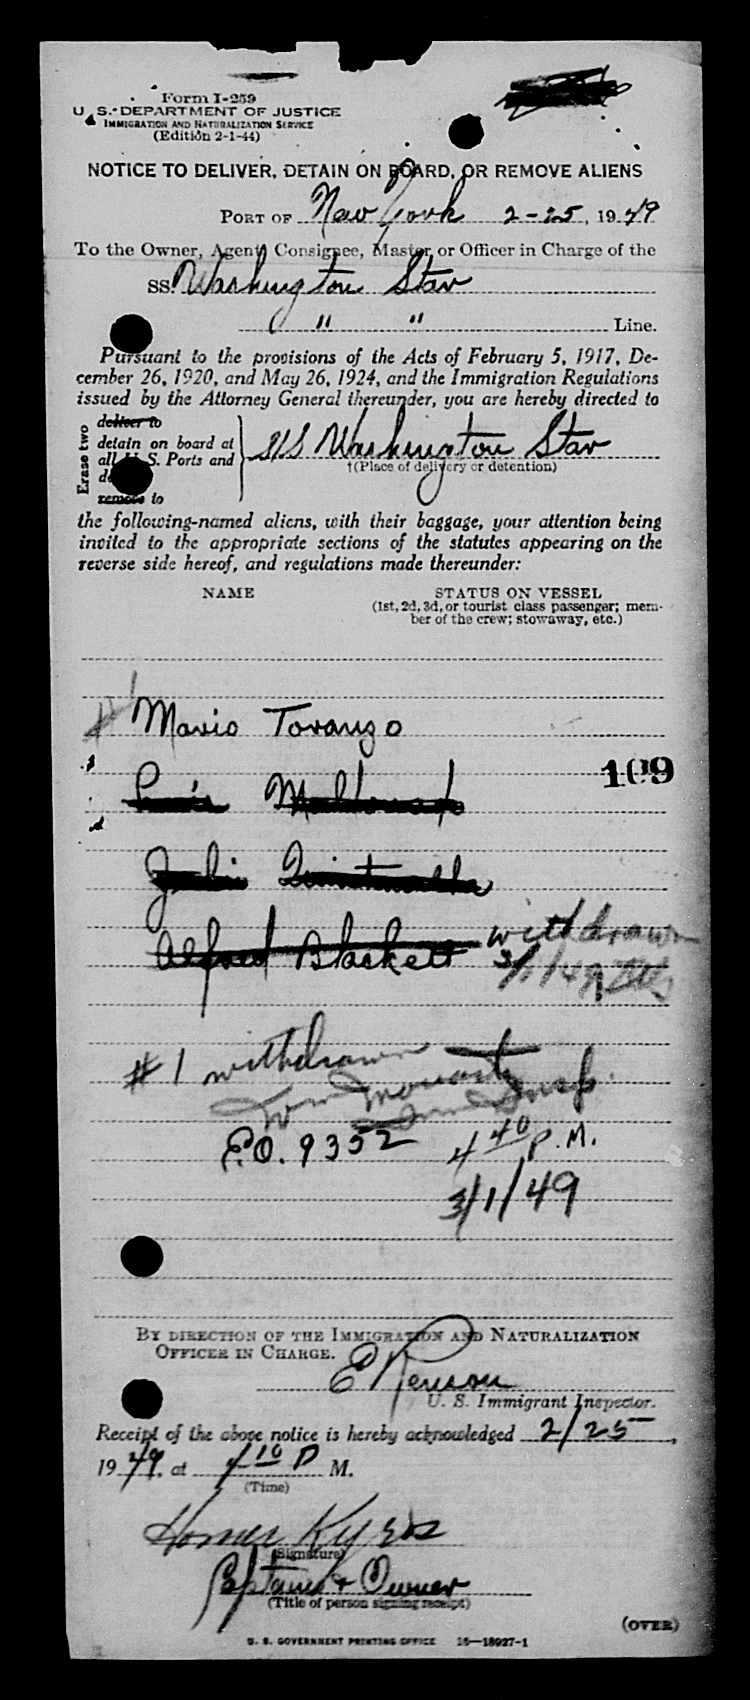 Form I-259
U. S. DEPARTMENT OF JUSTICE
IMMIGRATION AND NATURALIZATION SERVICE
(Edition 2-1-44)
NOTICE TO DELIVER, DETAIN ON BOARD, OR REMOVE ALIENS
PORT OF New York 2-25, 1949
To the Owner, Agent, Consignee, Master, or Officer in Charge of the
SS. Washington Star
" " Line.
Pursuant to the provisions of the Acts of February 5, 1917, De-
cember 26, 1920, and May 26, 1924, and the Immigration Regulations
issued by the Attorney General thereunder, you are hereby directed to
Erase two
deliver to
detain on board at
all U. S. Ports and
remove to
SS Washington Star
†(Place of delivery or detention)
the following-named aliens, with their baggage, your attention being
invited to the appropriate sections of the statutes appearing on the
reverse side hereof, and regulations made thereunder:
NAME STATUS ON VESSEL
(1st, 2d, 3d, or tourist class passenger; mem-
ber of the crew; stowaway, etc.)
Mario Toranzo
109
Luis Maldonado
Julio
Alfred Blackett withdrawn
3/1/49
#1 withdrawn
Imm Insp.
E.O. 9352 4 40 P.M.
3/1/49
BY DIRECTION OF THE IMMIGRATION AND NATURALIZATION
OFFICER IN CHARGE.
U. S. Immigrant Inspector.
Receipt of the above notice is hereby acknowledged 2/25,
1949, at 10 P M.
(Time)
Homer Kyros
(Signature)
Captain & Owner
(Title of person signing receipt)
(OVER)
U. S. GOVERNMENT PRINTING OFFICE 16—18927-1